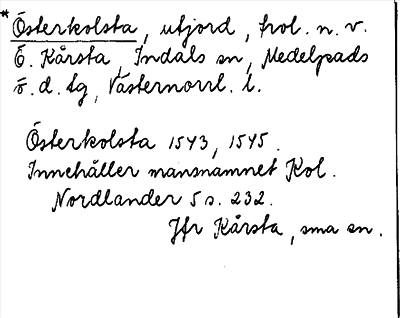 * Österkolsta, utjord, trol. n. v.
Ö. Kårsta, Indals sn, Medelpads
v. d. tg, Västernorrl. l.
Österkolsta 1543, 1545.
Innehåller mansnamnet Kol.
Nordlander 5 s. 232.
Jfr Kårsta, sma sn.